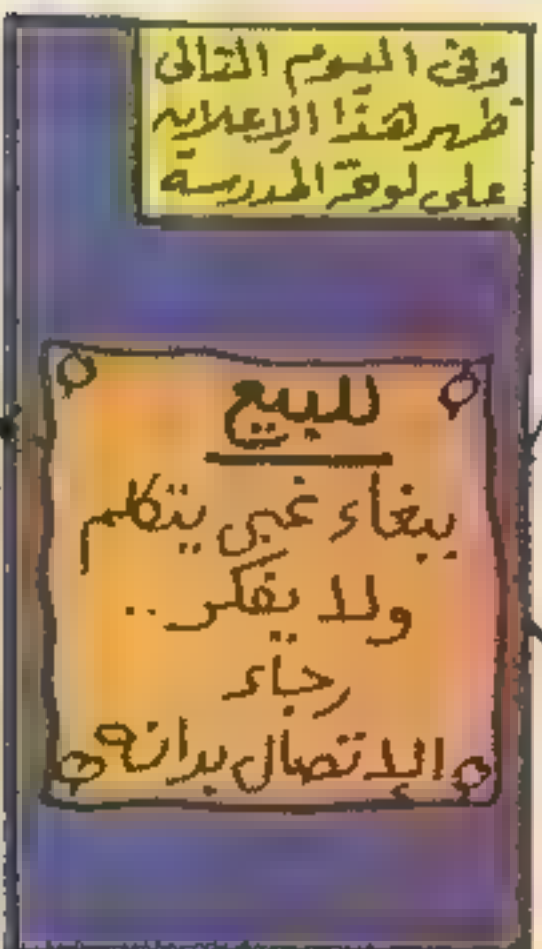 وفى اليوم التالى
ظهر هذا الإعلان
على لوحة المدرسة
للبيع
ببغاء غبى يتكلم
ولا يفكر ..
رجاء
الإتصال بدانه